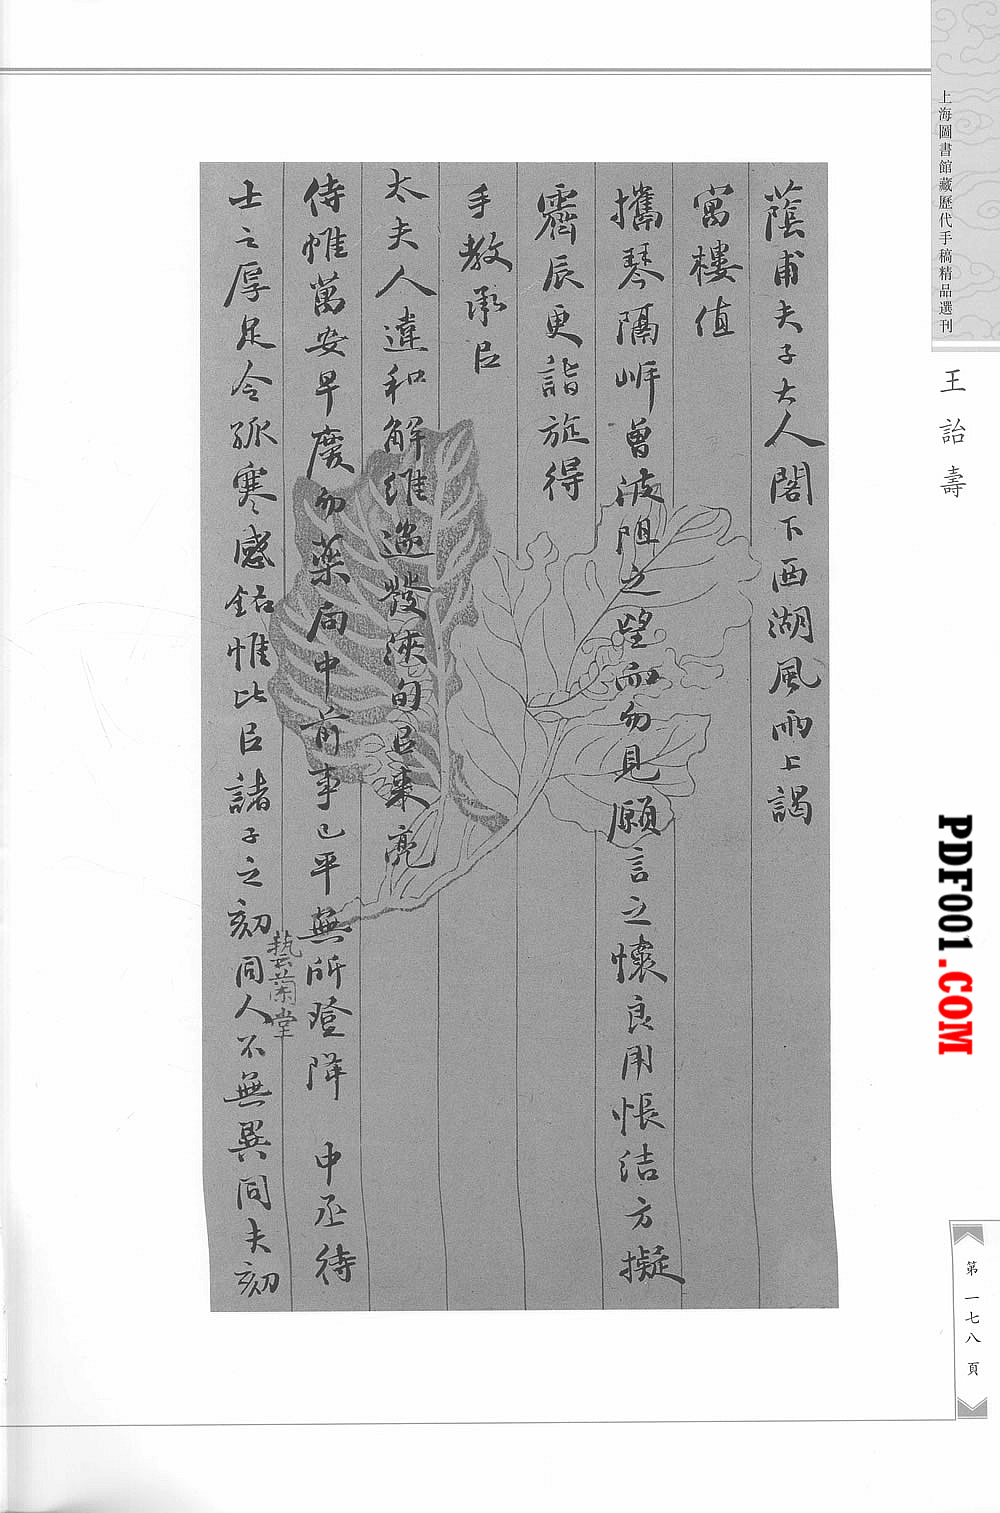 上海圖書館藏歷代手稿精品選刊
王詒壽
蔭甫夫子大人閣下西湖風雨上謁
寓樓值
攜琴隔岸曾波阻之望而勿見願言之懷良用悵結方擬
霽辰更詣旋得
手教承㠯
太夫人違和解維遄發浹旬㠯來亮
侍帷萬安早慶勿藥局中前事已平無所登降 中丞待
士之厚足令孤寒感銘惟比㠯諸子之刻同人不無異同夫刻
藝蘭堂
第一七八頁
PDF001.COM